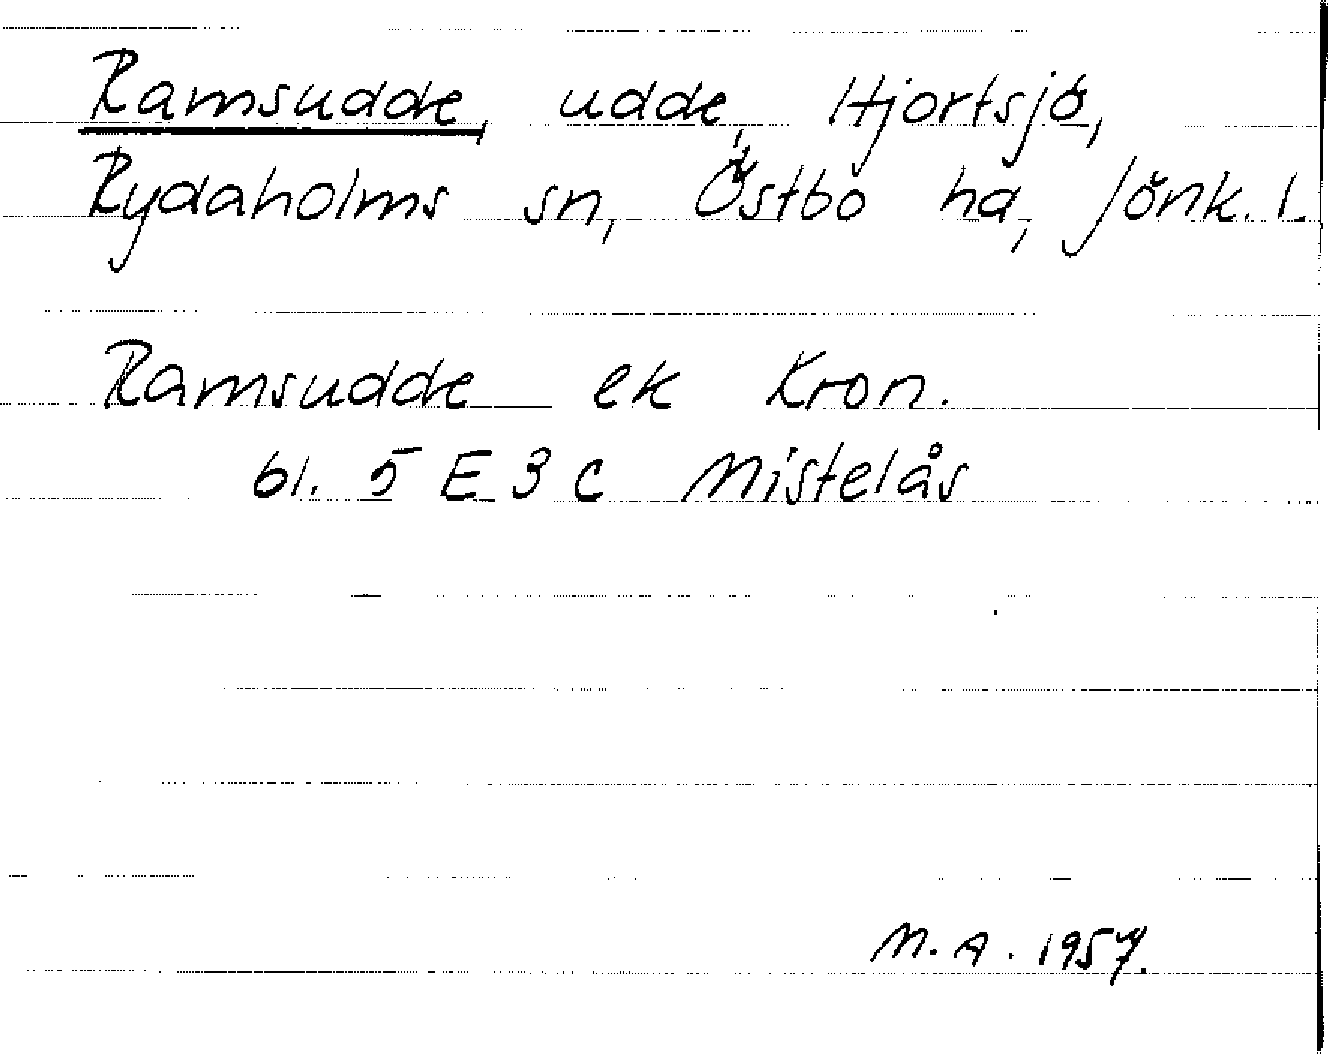 Ramsudde, udde, Hjortsjö,
Rydaholms sn, Östbo hd, Jönk. l.
Ramsudde ek Kron.
bl. 5 E 3 c Mistelås
M. A. 1957.